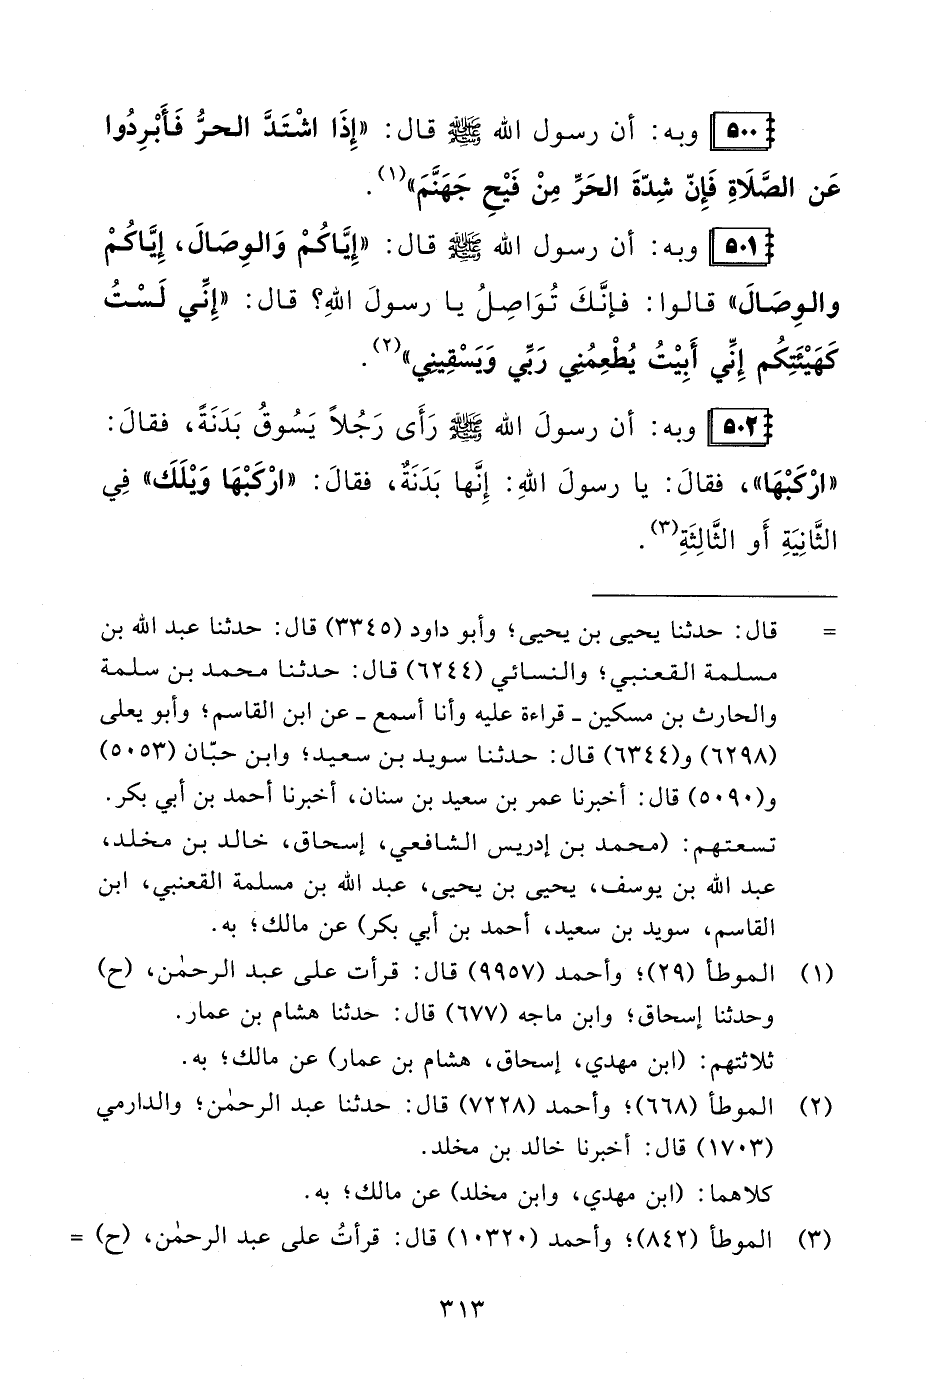 ٥٠٠ وبه: أن رسول الله ﷺ قال: «إِذَا اشْتَدَّ الحرُّ فَأَبْرِدُوا
عَن الصَّلَاةِ فَإِنّ شِدّةَ الحَرِّ مِنْ فَيْحِ جَهَنَّمَ»(١).
٥٠١ وبه: أن رسول الله ﷺ قال: «إِيَّاكُمْ وَالوِصَالَ، إِيَّاكُمْ
والوِصَالَ» قالوا: فإنَّكَ تُوَاصِلُ يا رسولَ اللهِ؟ قال: «إِنِّي لَسْتُ
كَهَيْئَتِكُم إِنِّي أَبِيْتُ يُطْعِمُنِي رَبِّي وَيَسْقِينِي»(٢).
٥٠٢ وبه: أن رسولَ الله ﷺ رَأَى رَجُلاً يَسُوقُ بَدَنَةً، فقالَ:
«ارْكَبْهَا»، فقالَ: يا رسولَ اللهِ: إنَّها بَدَنَةٌ، فقالَ: «ارْكَبْهَا وَيْلَكَ» فِي
الثَّانِيَةِ أَو الثَّالِثَةِ(٣).
= قال: حدثنا يحيى بن يحيى؛ وأبو داود (٣٣٤٥) قال: حدثنا عبد الله بن
مسلمة القعنبي؛ والنسائي (٦٢٤٤) قال: حدثنا محمد بن سلمة
والحارث بن مسكين - قراءة عليه وأنا أسمع - عن ابن القاسم؛ وأبو يعلى
(٦٢٩٨) و(٦٣٤٤) قال: حدثنا سويد بن سعيد؛ وابن حبّان (٥٠٥٣)
و(٥٠٩٠) قال: أخبرنا عمر بن سعيد بن سنان، أخبرنا أحمد بن أبي بكر.
تسعتهم: (محمد بن إدريس الشافعي، إسحاق، خالد بن مخلد،
عبد الله بن يوسف، يحيى بن يحيى، عبد الله بن مسلمة القعنبي، ابن
القاسم، سويد بن سعيد، أحمد بن أبي بكر) عن مالك؛ به.
(١) الموطأ (٢٩)؛ وأحمد (٩٩٥٧) قال: قرأت على عبد الرحمٰن، (ح)
وحدثنا إسحاق؛ وابن ماجه (٦٧٧) قال: حدثنا هشام بن عمار.
ثلاثتهم: (ابن مهدي، إسحاق، هشام بن عمار) عن مالك؛ به.
(٢) الموطأ (٦٦٨)؛ وأحمد (٧٢٢٨) قال: حدثنا عبد الرحمٰن؛ والدارمي
(١٧٠٣) قال: أخبرنا خالد بن مخلد.
كلاهما: (ابن مهدي، وابن مخلد) عن مالك؛ به.
(٣) الموطأ (٨٤٢)؛ وأحمد (١٠٣٢٠) قال: قرأتُ على عبد الرحمٰن، (ح) =
٣١٣